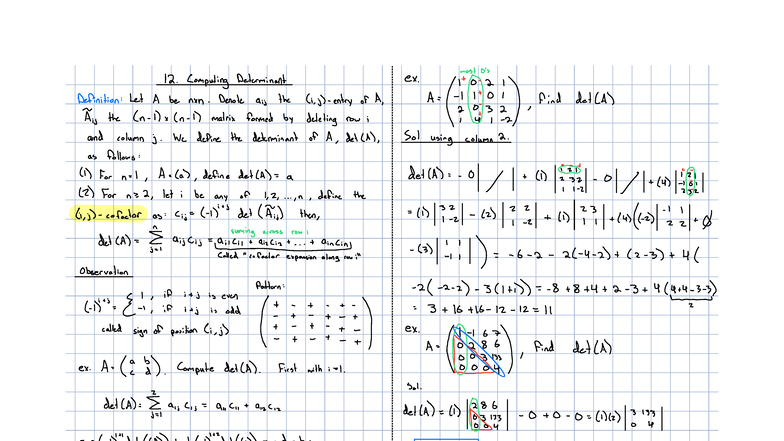 12. Computing Determinant
Definition: Let A be nxn. Denote aij the (i,j)-entry of A,
Ãij the (n-1)x(n-1) matrix formed by deleting row i
and column j. We define the determinant of A, det(A),
as follows:
(1) For n=1, A=(a), define det(A)=a
(2) For n≥2, let i be any of 1,2,...,n, define the
(i,j)-cofactor as: cij=(-1)^(i+j) det(Ãij) then,
summing across row i
det(A) = n Σ j=1 aij cij = ai1 ci1 + ai2 ci2 + ... + ain cin
Called "cofactor expansion along row i"
Observation
Pattern:
(-1)^(i+j) = { 1, if i+j is even
-1, if i+j is odd
called sign of position (i,j)
+ - + - + -
- + - + - +
+ - + - + -
- + - + - +
ex. A=(a b
c d). Compute det(A). First with i=1.
det(A)= 2 Σ j=1 aij cij = a11 c11 + a12 c12
most 0's
ex.
A= (1 0 2 1
-1 1 0 1
2 0 3 2
1 4 1 -2), find det(A)
Sol using column 2.
det(A)= -0 | | + (1) |1 2 1
2 3 2
1 1 -2| -0 | | +(4) |1 2 1
-1 0 1
2 3 2|
=(1) |3 2
1 -2| -(2) |2 2
1 -2| +(1) |2 3
1 1| +(4)((-2) |-1 1
2 2| + 0
-(3) |1 1
-1 1|) = -6-2 - 2(-4-2) + (2-3) + 4(
-2(-2-2) - 3(1+1)) = -8+8+4+2-3+4(4+4-3-3)
2
= 3+16+16-12-12=11
ex.
A= (1 -1 6 7
0 2 8 6
0 0 3 133
0 0 0 4), find det(A)
Sol.
det(A)= (1) |2 8 6
0 3 133
0 0 4| -0+0-0=(1)(2) |3 133
0 4|